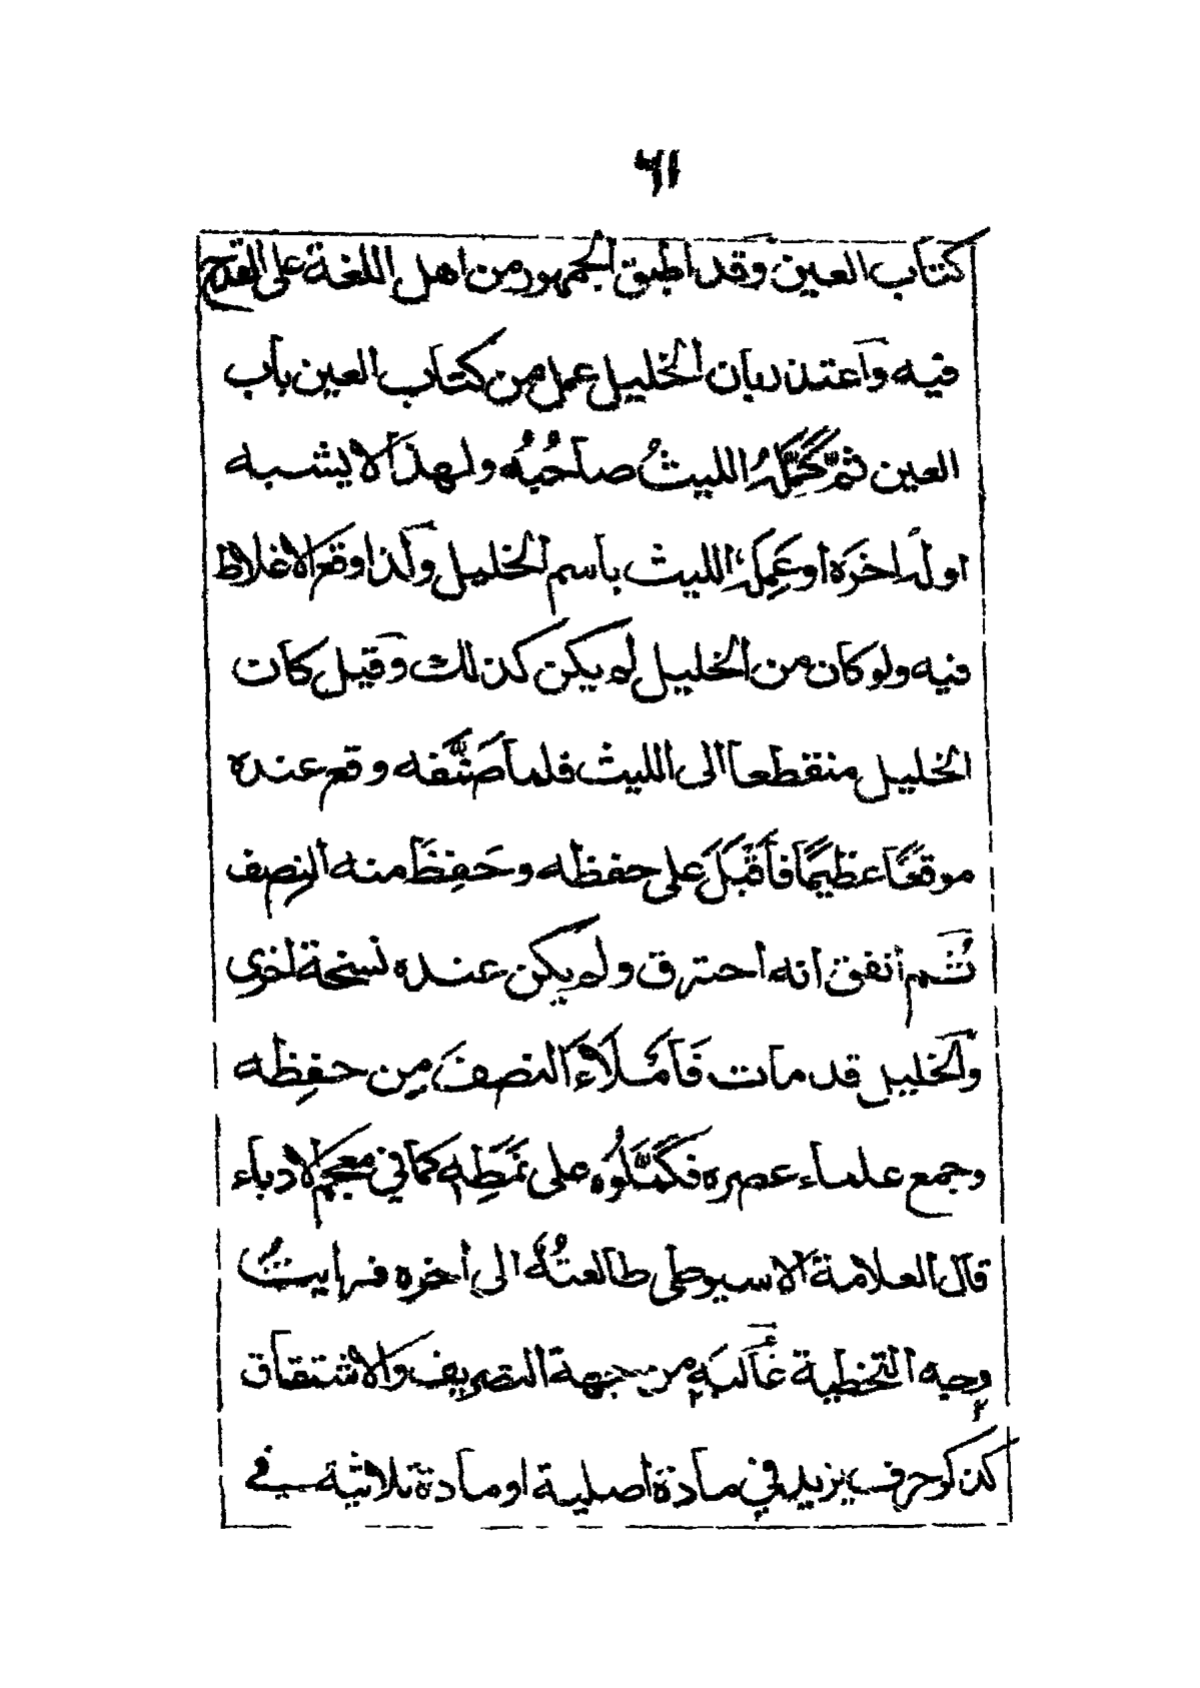 ٦١
كتاب العين وقد اطبق الجمهور من اهل اللغة على القدح
فيه وآعتذر بان الخليل عمل من كتاب العين باب
العين ثمّ كَمَّلَهُ الليثُ صاحُبُه ولهذا لا يشبه
اولُه اخرَه او عَمِلَهُ الليث باسم الخليل ولذا وقع الاغلاط
فيه ولو كان من الخليل لم يكن كذلك وقيل كان
الخليل منقطعا الى الليث فلما صَنَّفه وقع عنده
موقعًا عظيمًا فأَقْبَلَ على حفظه وحَفِظَ منه النصف
ثُم اتفق انه احترق ولم يكن عنده نسخة اخرى
والخليل قد مات فَأَمْلَاءَ النصفَ مِن حفِظه
وجمع علماء عصره فكمَّلَوُه على نَمَطِهِ كما في معجم الادباء
قال العلامة الاسيوطى طالعتُهُ الى أخره فرايتُ
وجه التخطية غَالَبِهِ من جهة التصريف والاشتقاق
كذكر حرف يزيد في مادة اصلية او مادة ثلاثية في